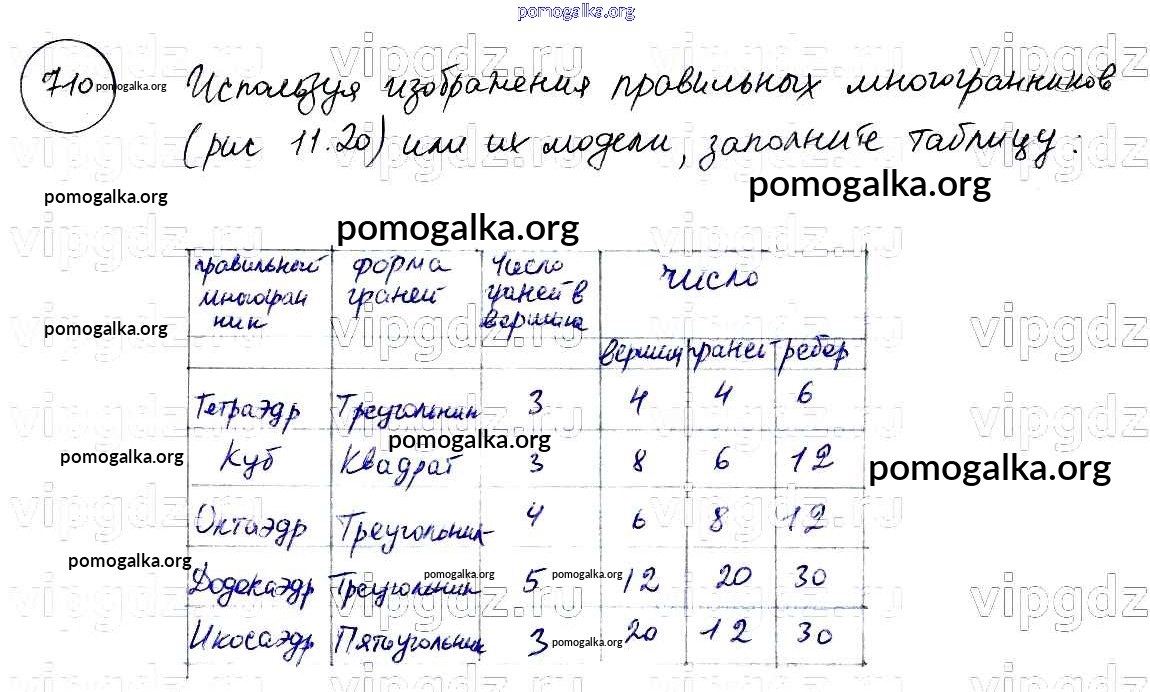 pomogalka.org
710 Используя изображения правильных многогранников
pomogalka.org
(рис 11.20) или их модели, заполните таблицу.
pomogalka.org pomogalka.org
pomogalka.org
правильный форма Число число
многогран граней граней в
ник вершине
pomogalka.org
вершин граней ребер
Тетраэдр Треугольник 3 4 4 6
pomogalka.org
Куб Квадрат 3 8 6 12
pomogalka.org pomogalka.org
Октаэдр Треугольник 4 6 8 12
pomogalka.org
pomogalka.org pomogalka.org
Додекаэдр Треугольник 5 12 20 30
Икосаэдр Пятиугольник 3 20 12 30
pomogalka.org
vipgdz.ru vipgdz.ru vipgdz.ru vipgdz